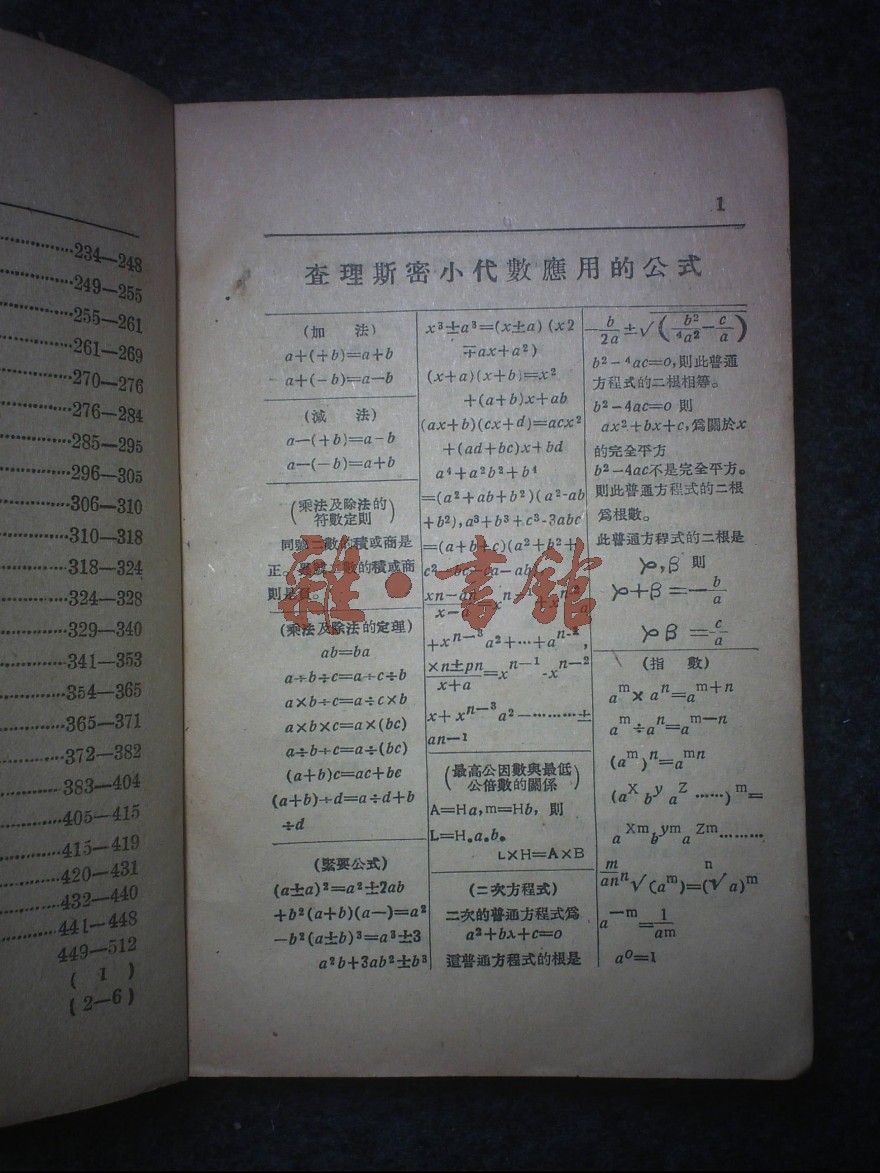 234—248
249—255
255—261
261—269
270—276
276—284
285—295
296—305
306—310
310—318
318—324
324—328
329—340
341—353
354—365
365—371
372—382
383—404
405—415
415—419
420—431
432—440
441—448
449—512
( 1 )
(2—6)
1
查理斯密小代數應用的公式
(加 法)
a+(+b)=a+b
a+(-b)=a—b
(減 法)
a—(+b)=a-b
a—(-b)=a+b
(乘法及除法的
符數定則)
同號二數的積或商是
正、異號二數的積或商
則是負。
(乘法及除法的定理)
ab=ba
a÷b÷c=a÷c÷b
a×b÷c=a÷c×b
a×b×c=a×(bc)
a÷b÷c=a÷(bc)
(a+b)c=ac+bc
(a+b)÷d=a÷d+b
÷d
(緊要公式)
(a±b)²=a²±2ab
+b²(a+b)(a—)=a²
—b²(a±b)³=a³±3
a²b+3ab²±b³
x³±a³=(x±a)(x2
∓ax+a²)
(x+a)(x+b)=x²
+(a+b)x+ab
(ax+b)(cx+d)=acx²
+(ad+bc)x+bd
a⁴+a²b²+b⁴
=(a²+ab+b²)(a²-ab
+b²),a³+b³+c³-3abc
=(a+b+c)(a²+b²+
c²-bc-ca-ab)
xn-an/x-a=x^n-1+x^n-2 a
+x^n-3 a²+…+a^n-1,
×n±pn/x+a=x^n-1 -x^n-2
x+x^n-3 a²—………±
an—1
(最高公因數與最低
公倍數的關係)
A=Ha,m=Hb, 則
L=H.a.b.
L×H=A×B
(二次方程式)
二次的普通方程式爲
a²+bx+c=o
這普通方程式的根是
-b/2a±√(b²/4a²-c/a)
b²-4ac=o,則此普通
方程式的二根相等。
b²-4ac=o 則
ax²+bx+c,爲關於x
的完全平方
b²-4ac不是完全平方。
則此普通方程式的二根
爲根數。
此普通方程式的二根是
α,β 則
α+β=-b/a
αβ=c/a
(指 數)
a^m×a^n=a^m+n
a^m÷a^n=a^m—n
(a^m)^n=a^mn
(a^x b^y a^z ……)^m=
a^xm b^ym a^zm………
a^m/n n√(a^m)=(n√a)^m
a^—m=1/am
a⁰=1
雜·書館